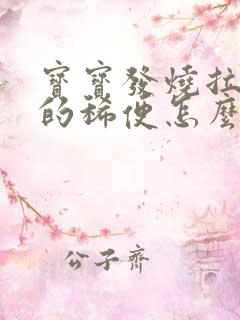 寶寶發燒拉
的稀便怎麼
公子齊